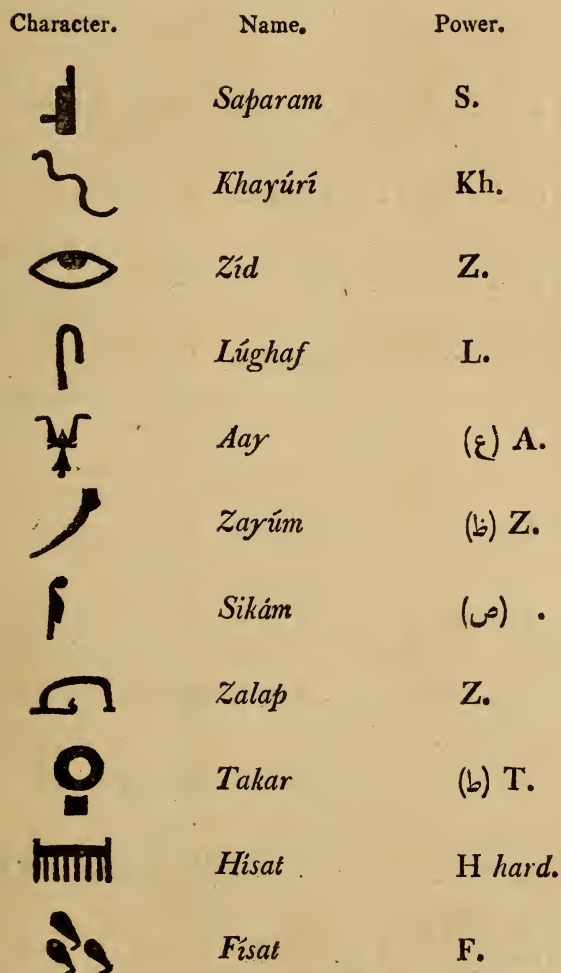 Character. Name. Power.
Saþaram S.
Khayúrí Kh.
Zíd Z.
Lúghaf L.
Aay (ع) A.
Zayúm (ظ) Z.
Sikám (ص) .
Zalaþ Z.
Takar (ط) T.
Hísat . H hard.
Físat F.